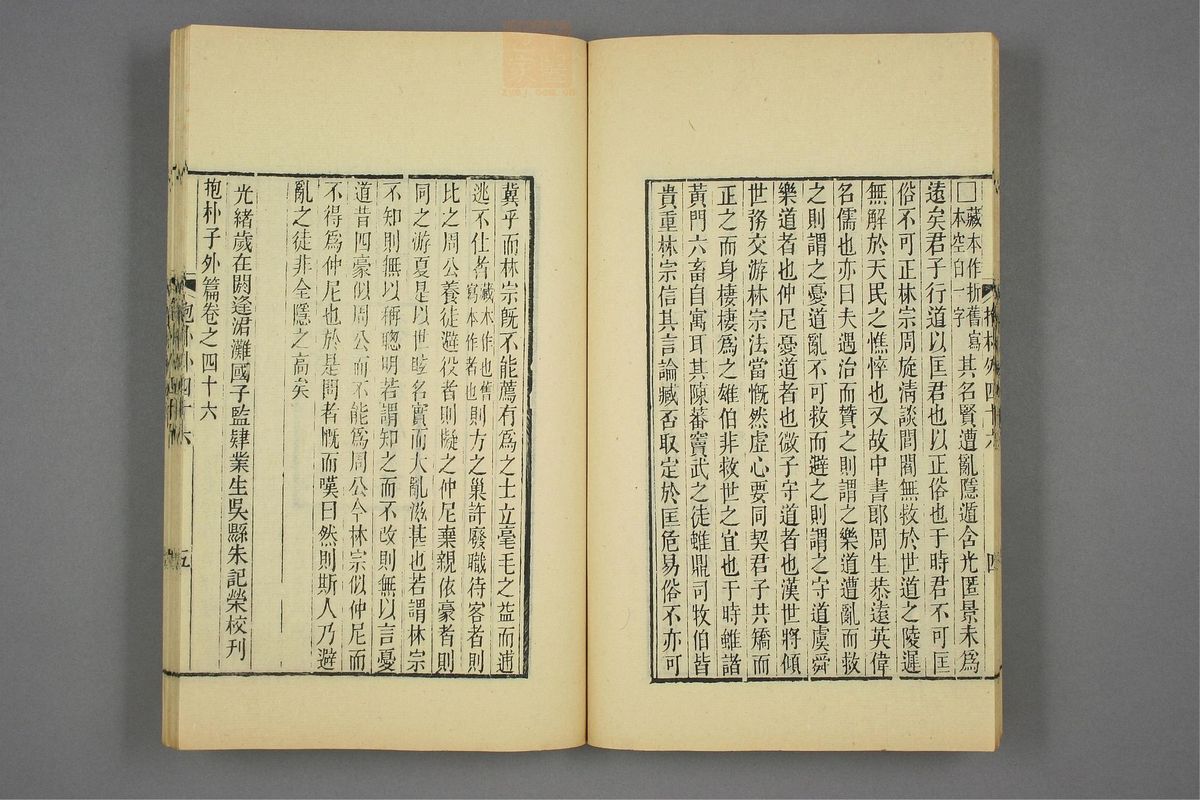 □藏本作折舊寫本空白一字其名賢遭亂隱遁含光匿景未爲
遠矣君子行道以匡君也以正俗也于時君不可匡
俗不可正林宗周旋清談閭閻無救於世道之陵遲
無解於天民之憔悴也又故中書郎周生恭遠英偉
名儒也亦曰夫遇治而贊之則謂之樂道遭亂而救
之則謂之憂道亂不可救而避之則謂之守道虞舜
樂道者也仲尼憂道者也微子守道者也漢世將傾
世務交游林宗法當慨然虛心要同契君子共矯而
正之而身棲棲爲之雄伯非救世之宜也于時雖諸
黃門六畜自寓耳其陳蕃竇武之徒雖鼎司牧伯皆
貴重林宗信其言論臧否取定於匡危易俗不亦可
四
冀乎而林宗旣不能薦有爲之士立毫毛之益而逋
逃不仕者藏本作也舊寫本作者也則方之巢許廢職待客者則
比之周公養徒避役者則擬之仲尼棄親依豪者則
同之游夏是以世眩名實而大亂滋甚也若謂林宗
不知則無以稱聰明若謂知之而不改則無以言憂
道昔四豪似周公而不能爲周公今林宗似仲尼而
不得爲仲尼也於是問者慨而嘆曰然則斯人乃避
亂之徒非全隱之高矣
光緒歲在閼逢涒灘國子監肄業生吳縣朱記榮校刊
抱朴子外篇卷之四十六
五